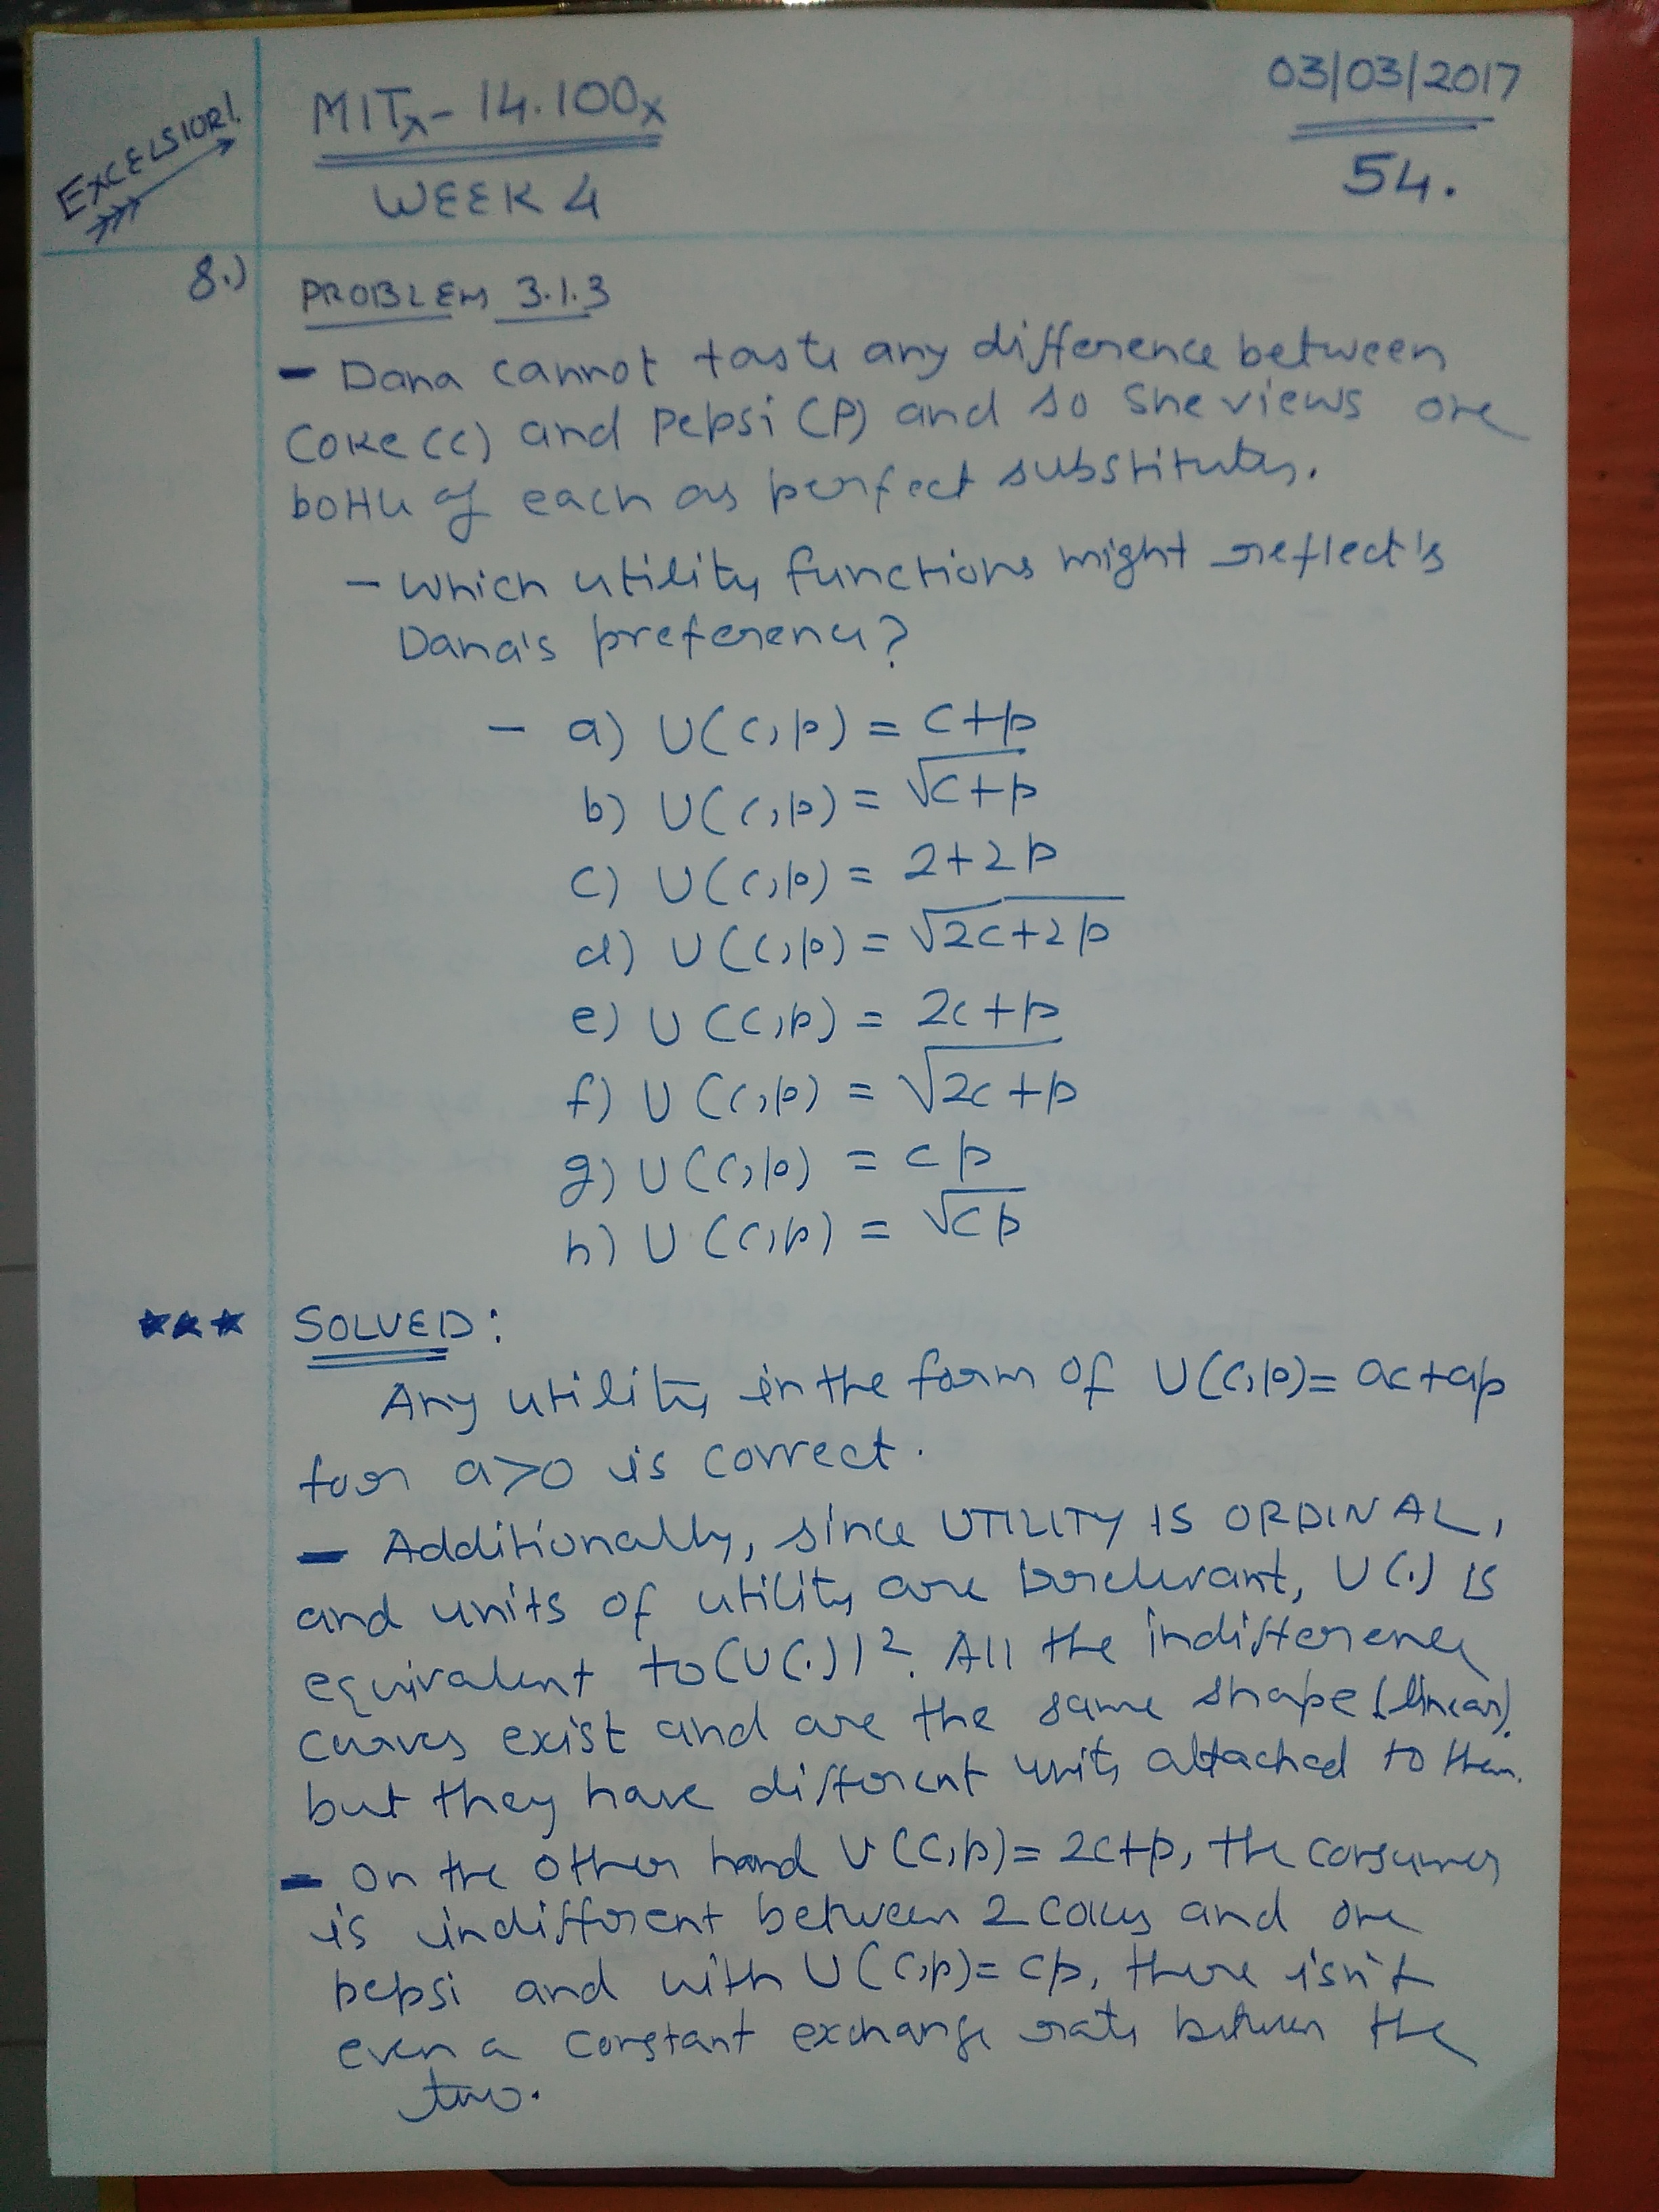 EXCELSIOR!
MITx - 14.100x
WEEK 4
03/03/2017
54.
8.) PROBLEM 3.1.3
- Dana cannot taste any difference between
Coke (C) and Pepsi (P) and so she views one
bottle of each as perfect substitutes.
- Which utility functions might reflect's
Dana's preference?
- a) U(c,p) = c+p
b) U(c,p) = √(c+p)
c) U(c,p) = 2+2p
d) U(c,p) = √(2c+2p)
e) U(c,p) = 2c+p
f) U(c,p) = √(2c+p)
g) U(c,p) = cp
h) U(c,p) = √(cp)
★★★ SOLVED:
Any utility in the form of U(c,p)= ac+ap
for a>0 is correct.
- Additionally, since UTILITY IS ORDINAL,
and units of utility are irrelevant, U(.) is
equivalent to (U(.))². All the indifference
curves exist and are the same shape (linear).
but they have different units attached to them.
- On the other hand U(c,p)= 2c+p, the consumer
is indifferent between 2 cokes and one
pepsi and with U(c,p)= cp, there isn't
even a constant exchange rate between the
two.